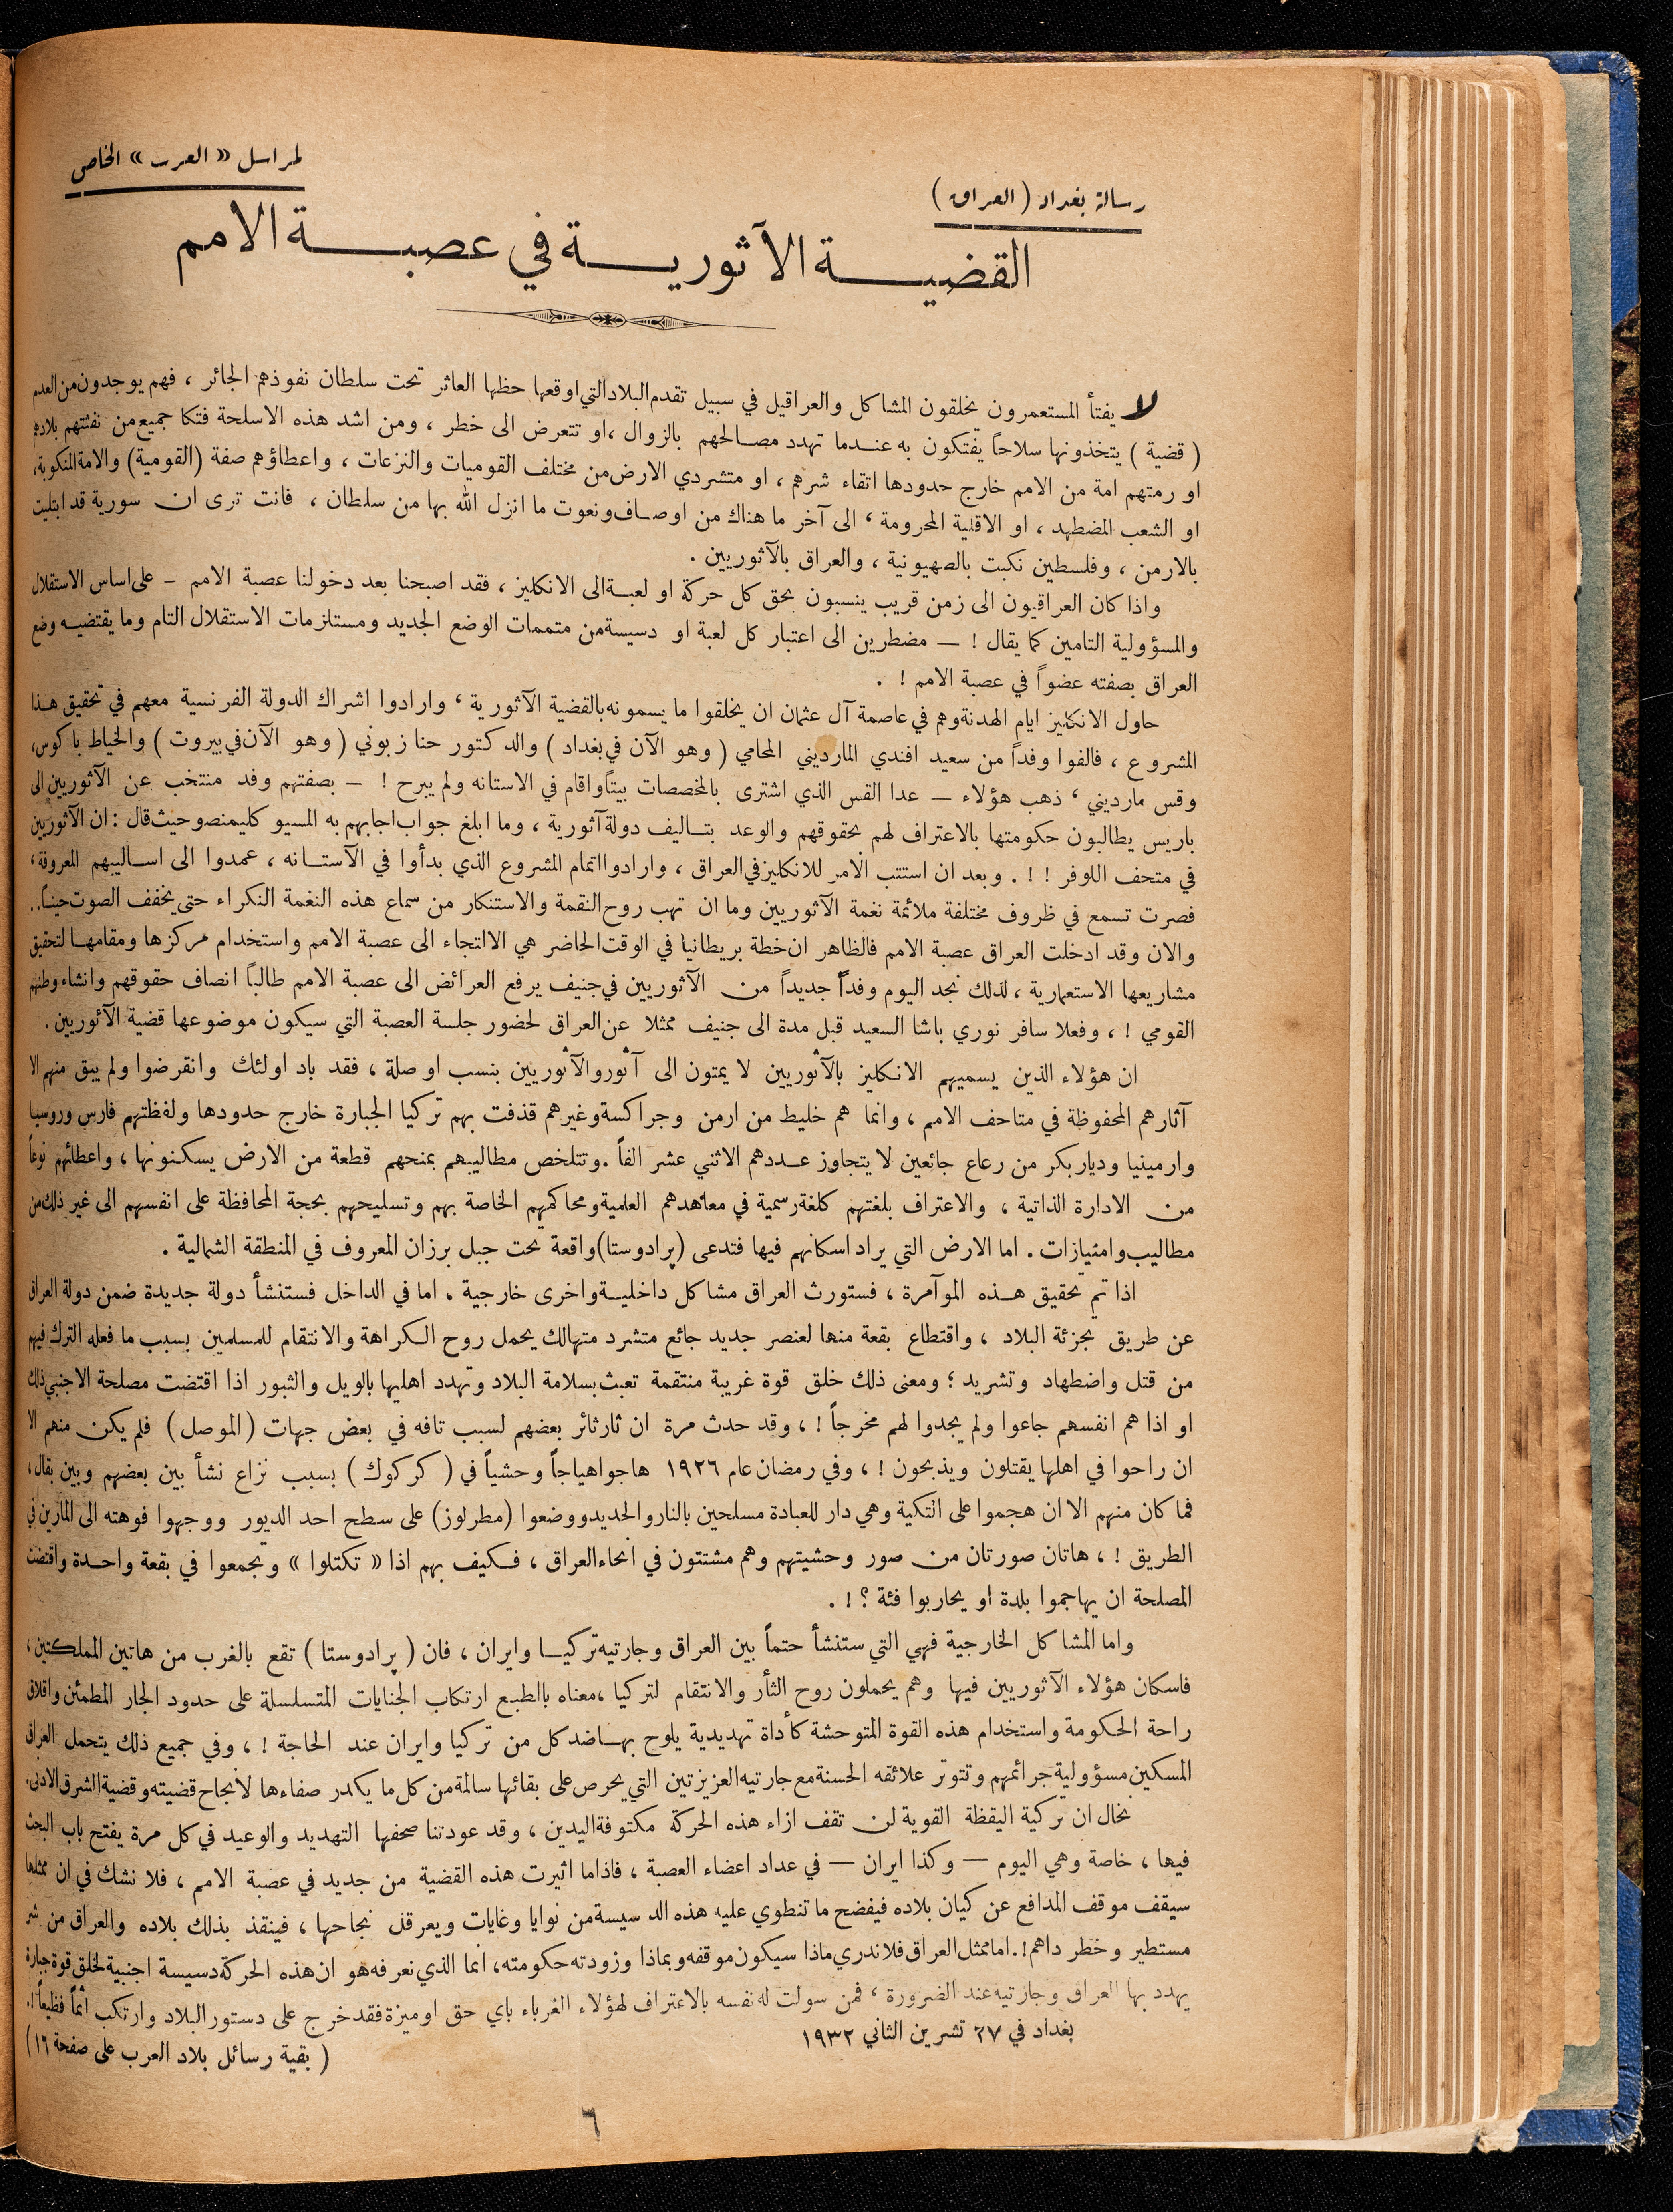 رسالة بغداد (العراق)
لمراسل «العرب» الخاص
القضية الآثورية في عصبة الامم
لا يفتأ المستعمرون يخلقون المشاكل والعراقيل في سبيل تقدم البلاد التي اوقعها حظها العاثر تحت سلطان نفوذهم الجائر ، فهم يوجدون من العدم
( قضية ) يتخذونها سلاحاً يفتكون به عندما تهدد مصالحهم بالزوال ، او تتعرض الى خطر ، ومن اشد هذه الاسلحة فتكا جميع من نفثتهم بلادهم
او رمتهم امة من الامم خارج حدودها اتقاء شرهم ، او متشردي الارض من مختلف القوميات والنزعات ، واعطاؤهم صفة (القومية) والامة المنكوبة،
او الشعب المضطهد ، او الاقلية المحرومة ، الى آخر ما هناك من اوصاف ونعوت ما انزل الله بها من سلطان ، فانت ترى ان سورية قد ابتليت
بالارمن ، وفلسطين نكبت بالصهيونية ، والعراق بالآثوريين .
واذا كان العراقيون الى زمن قريب ينسبون بحق كل حركة او لعبة الى الانكليز ، فقد اصبحنا بعد دخولنا عصبة الامم – على اساس الاستقلال
والمسؤولية التامين كما يقال ! – مضطرين الى اعتبار كل لعبة او دسيسة من متممات الوضع الجديد ومستلزمات الاستقلال التام وما يقتضيه وضع
العراق بصفته عضواً في عصبة الامم ! .
حاول الانكليز ايام الهدنة وهم في عاصمة آل عثمان ان يخلقوا ما يسمونه بالقضية الآثورية ، وارادوا اشراك الدولة الفرنسية معهم في تحقيق هذا
المشروع ، فالفوا وفداً من سعيد افندي المارديني المحامي ( وهو الآن في بغداد ) والدكتور حنا زبوني ( وهو الآن في بيروت ) والخياط باكوس،
وقس مارديني ، ذهب هؤلاء – عدا القس الذي اشترى بالمخصصات بيتاً واقام في الاستانه ولم يبرح ! – بصفتهم وفد منتخب عن الآثوريين الى
باريس يطالبون حكومتها بالاعتراف لهم بحقوقهم والوعد بتاليف دولة آثورية ، وما ابلغ جواب اجابهم به المسيو كليمنصو حيث قال : ان الآثوريين
في متحف اللوفر ! ! . وبعد ان استتب الامر للانكليز في العراق ، وارادوا اتمام المشروع الذي بدأوا في الآستانه ، عمدوا الى اساليبهم المعروفة ،
فصرت تسمع في ظروف مختلفة ملائمة نغمة الآثوريين وما ان تهب روح النقمة والاستنكار من سماع هذه النغمة النكراء حتى يخفف الصوت حيناً..
والان وقد ادخلت العراق عصبة الامم فالظاهر ان خطة بريطانيا في الوقت الحاضر هي الالتجاء الى عصبة الامم واستخدام مركزها ومقامها لتحقيق
مشاريعها الاستعمارية ، لذلك نجد اليوم وفداً جديداً من الآثوريين في جنيف يرفع العرائض الى عصبة الامم طالباً انصاف حقوقهم وانشاء وطنهم
القومي ! ، وفعلا سافر نوري باشا السعيد قبل مدة الى جنيف ممثلا عن العراق لحضور جلسة العصبة التي سيكون موضوعها قضية الآثوريين .
ان هؤلاء الذين يسميهم الانكليز بالآثوريين لا يمتون الى آثور والآثوريين بنسب او صلة ، فقد باد اولئك وانقرضوا ولم يبق منهم الا
آثارهم المحفوظة في متاحف الامم ، وانما هم خليط من ارمن وجراكسة وغيرهم قذفت بهم تركيا الجبارة خارج حدودها ولفظتهم فارس وروسيا
وارمينيا وديار بكر من رعاع جائعين لا يتجاوز عددهم الاثني عشر الفاً . وتتلخص مطاليبهم بمنحهم قطعة من الارض يسكنونها ، واعطائهم نوعاً
من الادارة الذاتية ، والاعتراف بلغتهم كلغة رسمية في معاهدهم العلمية ومحاكمهم الخاصة بهم وتسليحهم بحجة المحافظة على انفسهم الى غير ذلك من
مطاليب وامتيازات . اما الارض التي يراد اسكانهم فيها فتدعى (پرادوستا) واقعة تحت جبل برزان المعروف في المنطقة الشمالية .
اذا تم تحقيق هذه الموآمرة ، فستورث العراق مشاكل داخلية واخرى خارجية . اما في الداخل فستنشأ دولة جديدة ضمن دولة العراق
عن طريق تجزئة البلاد ، واقتطاع بقعة منها لعنصر جديد جائع متشرد متهالك يحمل روح الكراهة والانتقام للمسلمين بسبب ما فعله الترك فيهم
من قتل واضطهاد وتشريد ؛ ومعنى ذلك خلق قوة غريبة منتقمة تعبث بسلامة البلاد وتهدد اهليها بالويل والثبور اذا اقتضت مصلحة الاجنبي ذلك
او اذا هم انفسهم جاعوا ولم يجدوا لهم مخرجاً ! ، وقد حدث مرة ان ثار ثائر بعضهم لسبب تافه في بعض جهات (الموصل) فلم يكن منهم الا
ان راحوا في اهلها يقتلون ويذبحون ! ، وفي رمضان عام ١٩٢٦ هاجوا هياجاً وحشياً في ( كركوك ) بسبب نزاع نشأ بين بعضهم وبين بقال ،
فما كان منهم الا ان هجموا على التكية وهي دار للعبادة مسلحين بالنار والحديد ووضعوا (مطرلوز) على سطح احد الديور ووجهوا فوهته الى المارين في
الطريق ! ، هاتان صورتان من صور وحشيتهم وهم مشتتون في انحاء العراق ، فكيف بهم اذا « تكتلوا » وتجمعوا في بقعة واحدة واقتضت
المصلحة ان يهاجموا بلدة او يحاربوا فئة ؟ ! .
واما المشاكل الخارجية فهي التي ستنشأ حتماً بين العراق وجارتيه تركيا وايران ، فان ( پرادوستا ) تقع بالغرب من هاتين المملكتين ،
فاسكان هؤلاء الآثوريين فيها وهم يحملون روح الثأر والانتقام لتركيا ، معناه بالطبع ارتكاب الجنايات المتسلسلة على حدود الجار المطمئن واقلاق
راحة الحكومة واستخدام هذه القوة المتوحشة كأداة تهديدية يلوح بها ضد كل من تركيا وايران عند الحاجة ! ، وفي جميع ذلك يتحمل العراق
المسكين مسؤولية جرائمهم وتتوتر علائقه الحسنة مع جارتيه العزيزتين التي يحرص على بقائها سالمة من كل ما يكدر صفاءها لانجاح قضيته وقضية الشرق الادنى.
نخال ان تركية اليقظة القوية لن تقف ازاء هذه الحركة مكتوفة اليدين ، وقد عودتنا صحفها التهديد والوعيد في كل مرة يفتح باب البحث
فيها ، خاصة وهي اليوم – وكذا ايران – في عداد اعضاء العصبة ، فاذاما اثيرت هذه القضية من جديد في عصبة الامم ، فلا نشك في ان ممثلها
سيقف موقف المدافع عن كيان بلاده فيفضح ما تنطوي عليه هذه الدسيسة من نوايا وغايات ويعرقل نجاحها ، فينقذ بذلك بلاده والعراق من شر
مستطير وخطر داهم !. اما ممثل العراق فلا ندري ماذا سيكون موقفه وبماذا وزودته حكومته ، انما الذي نعرفه هو ان هذه الحركة دسيسة اجنبية لخلق قوة جبارة
يهدد بها العراق وجارتيه عند الضرورة ، فمن سولت له نفسه بالاعتراف لهؤلاء الغرباء باي حق او ميزة فقد خرج على دستور البلاد وارتكب اثماً فظيعاً !.
بغداد في ٢٧ تشرين الثاني ١٩٣٢
( بقية رسائل بلاد العرب على صفحة ١٦)
٦